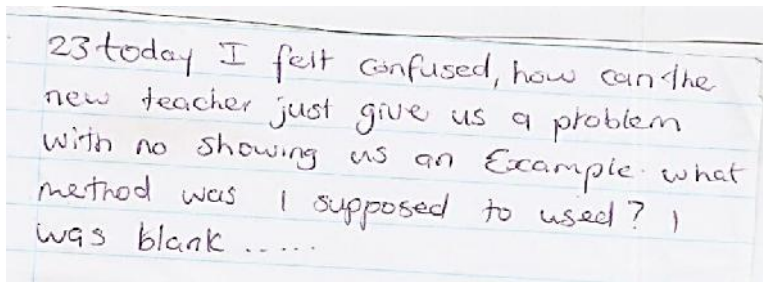 23 today I felt confused, how can the
new teacher just give us a problem
with no showing us an Example. what
method was I supposed to used? I
was blank .....